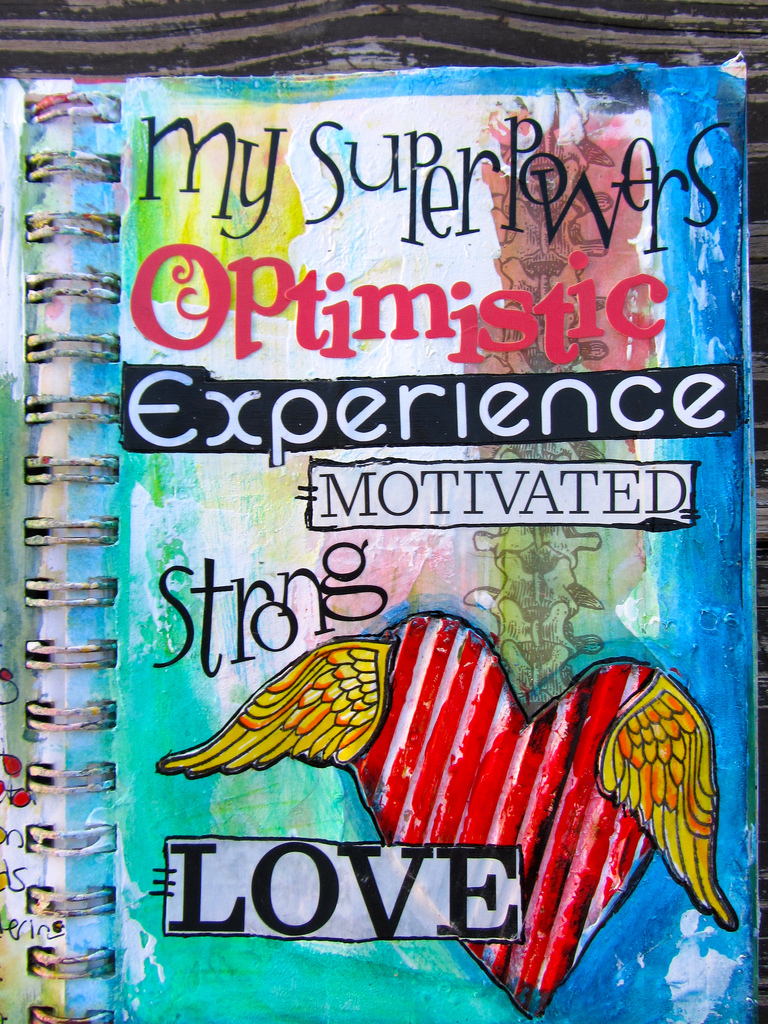 my superpowers
Optimistic
Experience
MOTIVATED
strong
LOVE